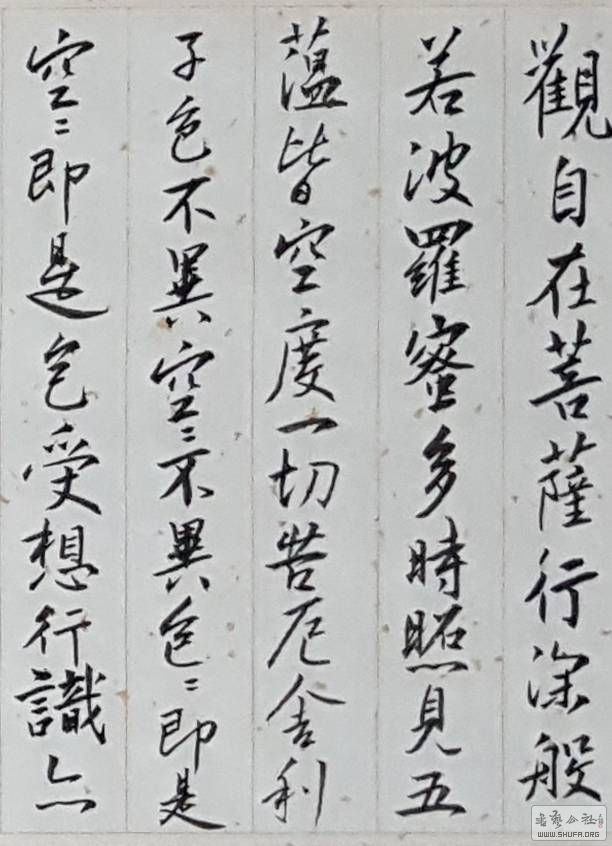 觀自在菩薩行深般
若波羅蜜多時照見五
蘊皆空度一切苦厄舍利
子色不異空〻不異色〻即是
空〻即是色受想行識亦
書藝公社
WWW.SHUFA.ORG